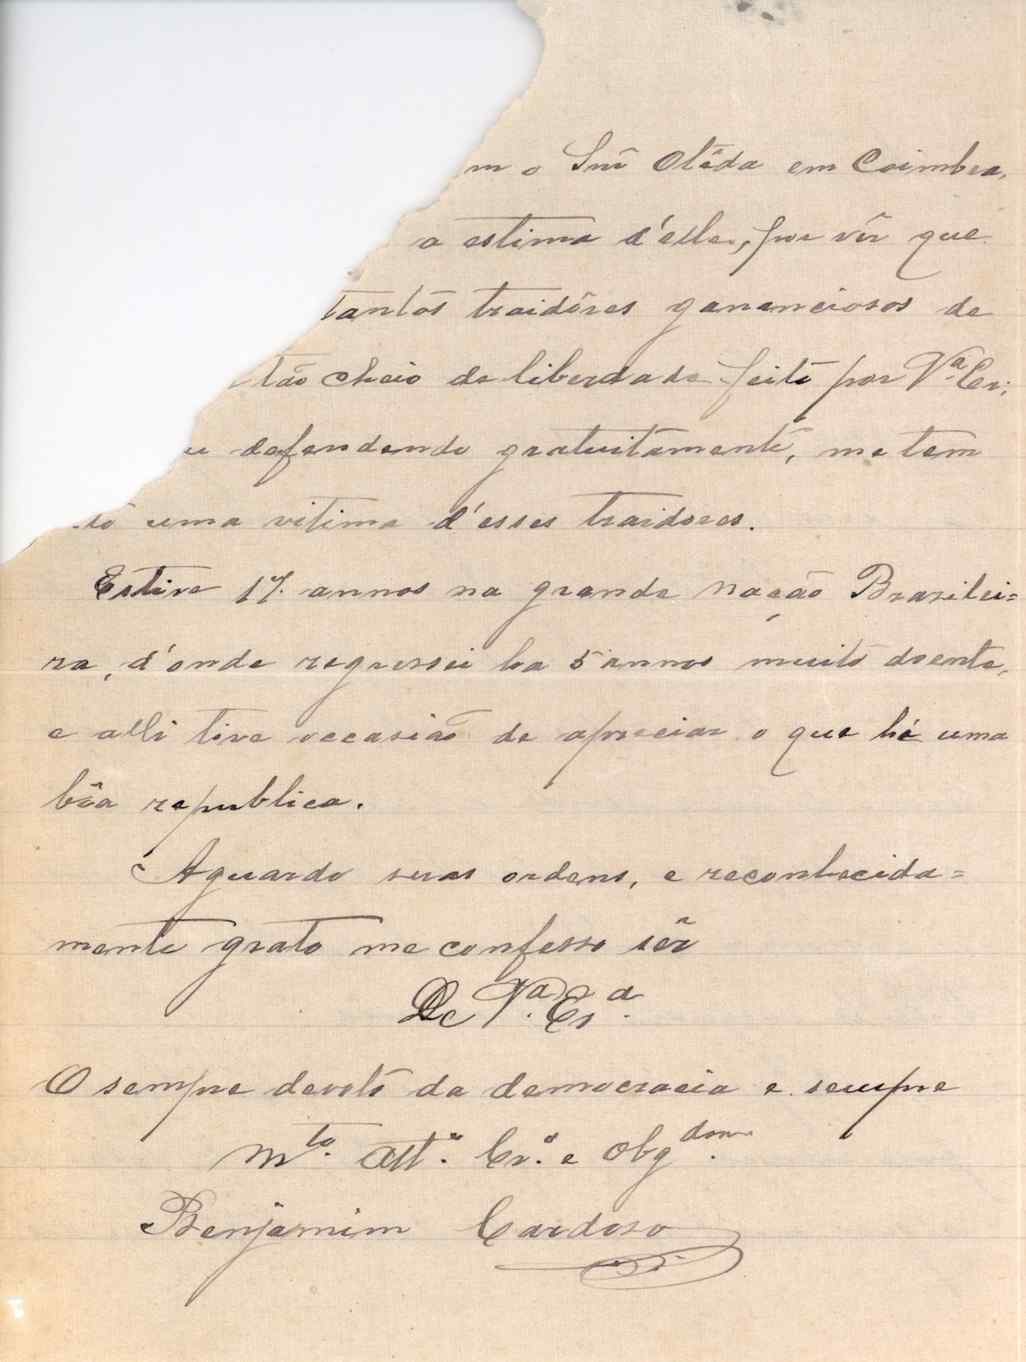 m o Snr Oláda em Coimbra,
a estima d'elle, por vêr que
tantos traidôres gananciosos de
tão cheio de liberdade feito por Vª. Ex:
u defendendo gratuitamente, me tem
to uma vitima d'esses traidores.
Estive 17 annos na grande nação Brasilei=
ra, d'onde regressei ha 5 annos muito doente,
e alli tive occasião de apreciar o que hé uma
bôa republica.
Aguardo suas ordens, e reconhecida=
mente grato me confesso sêr
De Vª. Exª.
O sempre devoto da democracia e sempre
Mto. Attº. Crº. e Obgdom.
Benjamim Cardoso